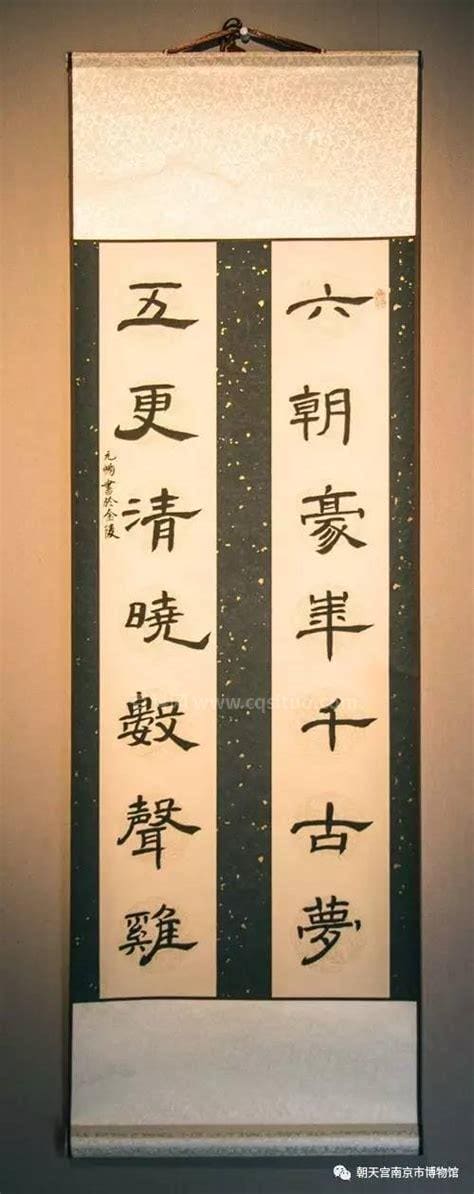 六朝豪華千古夢
五更清曉數聲雞
元 書於金陵
www.cqsituo.com
朝天宫南京市博物馆